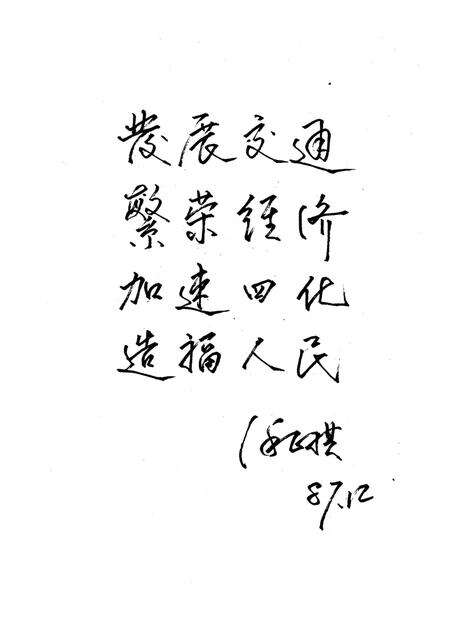 發展交通
繁荣经济
加速四化
造福人民
87.12